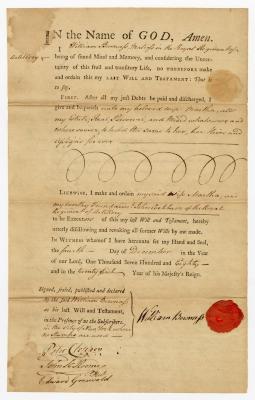 IN the Name of GOD, Amen.
I William Bowness in the Royal
Artillery
being of sound Mind and Memory, and considering the Uncer-
tainty of this frail and transitory Life, DO THEREFORE make
and ordain this my LAST WILL AND TESTAMENT: That is
to say,
FIRST, After all my just Debts be paid and discharged, I
give and bequeath unto my beloved wife Martha, all
my Estate, Real Personal, and Mixed whatsoever and
wheresoever, to hold the same to her, her Heirs and
assigns forever
LIKEWISE, I make and ordain my said wife Martha, and
my of the Royal
Regiment of Artillery
to be Executors of this my last Will and Testament, hereby
utterly disallowing and revoking all former Wills by me made.
In WITNESS whereof I have hereunto set my Hand and Seal,
the fourth Day of December in the Year
of our Lord, One Thousand Seven Hundred and Eighty
and in the twenty first Year of his Majesty's Reign.
Signed, sealed, published and declared
by the said William Bowness
as his last Will and Testament,
in the Presence of us the Subscribers,
in the City of New York where
no Stamps are used
William Bowness
Peter
John
Edward